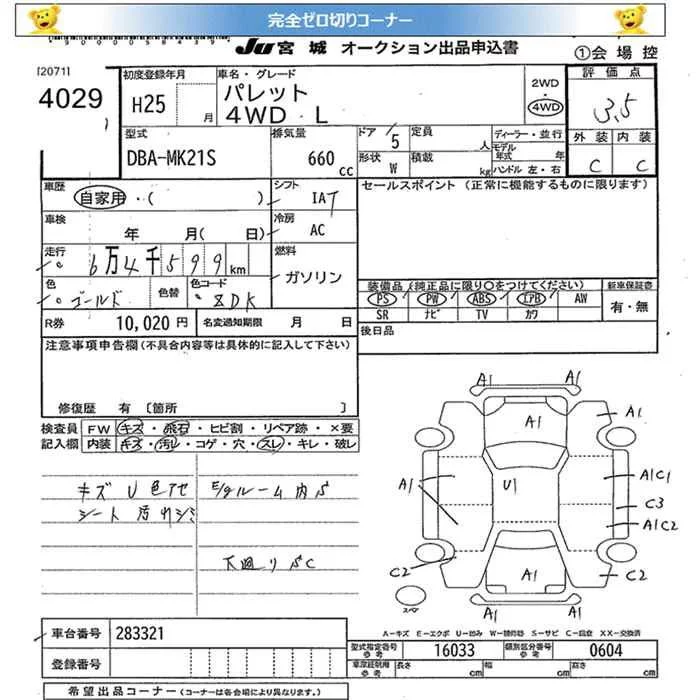 完全ゼロ切りコーナー
JU 宮城 オークション出品申込書 ①会場控
[2071]
4029
初度登録年月 H25 月
車名・グレード パレット 4WD L
2WD ・ 4WD
評価点 3.5
型式 DBA-MK21S
排気量 660 cc
ドア 5 定員 人
形状 W 積載 kg
ディーラー・並行
モデル年式 年
ハンドル 左・右
外装 内装
C C
車歴 自家用・( )
シフト IAT
セールスポイント (正常に機能するものに限ります)
車検 年 月( 日)
冷房 AC
走行 6万4千599km
燃料 ガソリン
色 ゴールド 色替 色コード ZDK
装備品 (純正品に限り○をつけてください) 新車保証書
PS PW ABS エアB AW 有・無
SR ナビ TV カワ
R券 10,020円 名変通知期限 月 日
後日品
注意事項申告欄 (不具合内容等は具体的に記入して下さい)
修復歴 有 [箇所 ]
検査員 FW キズ・飛石・ヒビ割・リペア跡・×要
記入欄 内装 キズ・汚レ・コゲ・穴・スレ・キレ・破レ
キズ U 色アセ
シート 汚れシミ
E/gルーム内S
下廻りSC
A1 A1
A1 A1
A1 U1 A1C1
C3
A1C2
C2 A1 C2
A1 A1
スペア
A-キズ E-エクボ U-凹み W-補修跡 S-サビ C-腐食 XX-交換済
車台番号 283321
型式指定番号 参考 16033 類別区分番号 参考 0604
登録番号
車庫証明用 参考 長さ cm 幅 cm 高さ cm
希望出品コーナー (コーナーは各会場により異なります。)